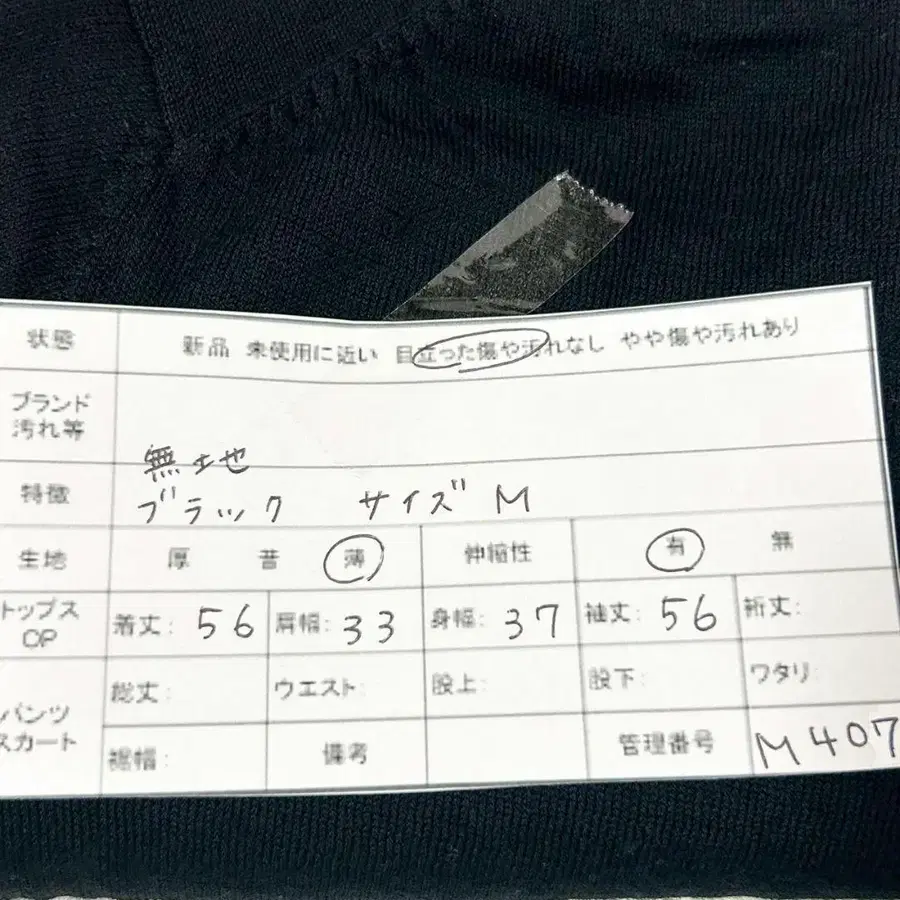 状態 新品 未使用に近い 目立った傷や汚れなし やや傷や汚れあり
ブランド
汚れ等
無地
特徴 ブラック サイズ M
生地 厚 普 薄 伸縮性 有 無
トップス
OP 着丈: 56 肩幅: 33 身幅: 37 袖丈: 56 裄丈:
総丈: ウエスト: 股上: 股下: ワタリ:
パンツ
スカート
裾幅: 備考 管理番号 M407